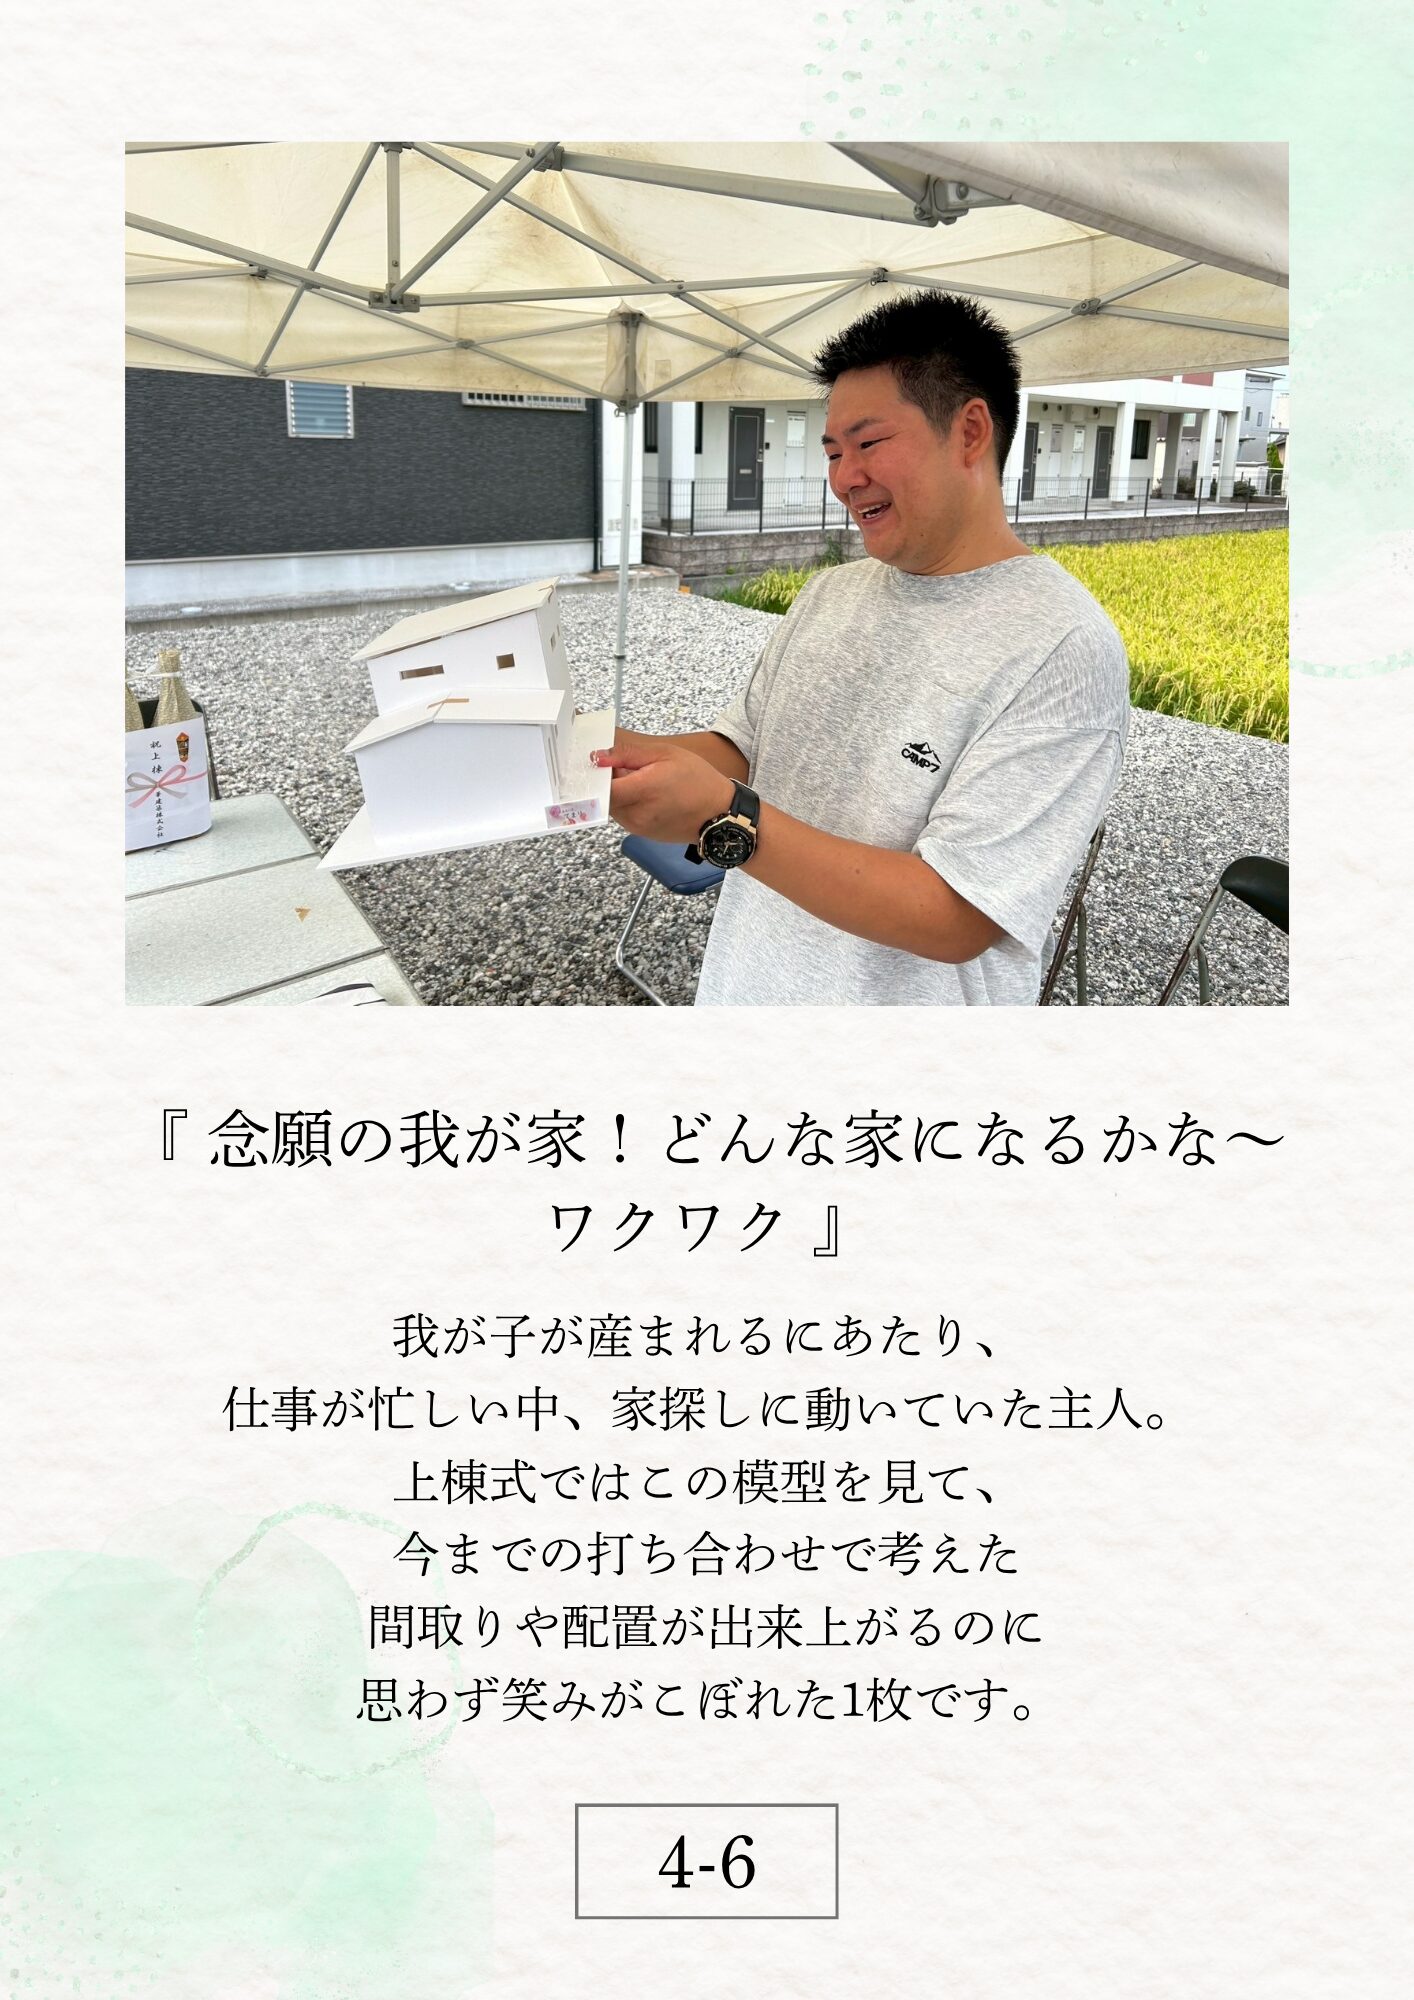 祝上棟
華建築株式会社
CAMP7
『 念願の我が家！どんな家になるかな～
ワクワク 』
我が子が産まれるにあたり、
仕事が忙しい中、家探しに動いていた主人。
上棟式ではこの模型を見て、
今までの打ち合わせで考えた
間取りや配置が出来上がるのに
思わず笑みがこぼれた1枚です。
4-6